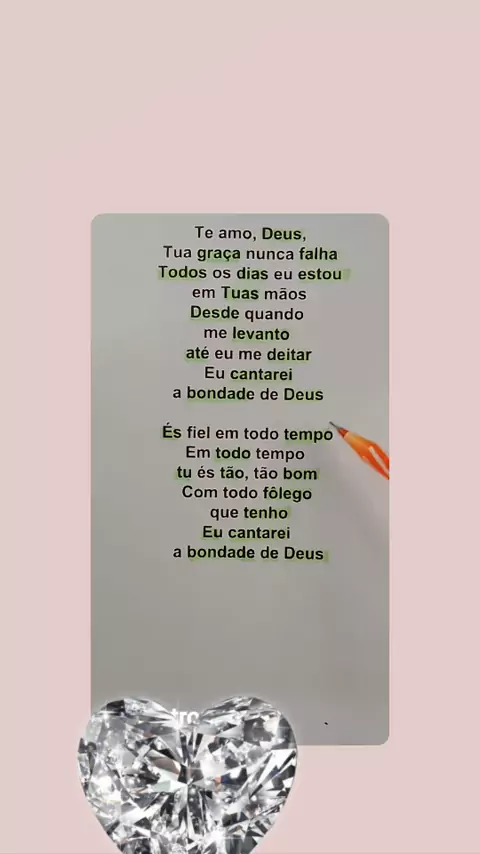 Te amo, Deus,
Tua graça nunca falha
Todos os dias eu estou
em Tuas mãos
Desde quando
me levanto
até eu me deitar
Eu cantarei
a bondade de Deus
És fiel em todo tempo
Em todo tempo
tu és tão, tão bom
Com todo fôlego
que tenho
Eu cantarei
a bondade de Deus